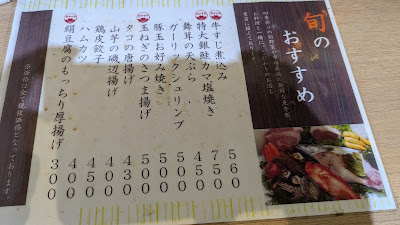 旬のおすすめ
牛すじ煮込み 560
特大銀鮭カマ塩焼き 750
舞茸の天ぷら 450
ガーリックシュリンプ 500
豚玉お好み焼き 500
玉ねぎのさつま揚げ 500
タコの唐揚げ 430
山芋の磯辺揚げ 400
鶏皮餃子 450
ハムカツ 400
絹豆腐のもっちり厚揚げ 300
価格は全て税抜価格となっております。